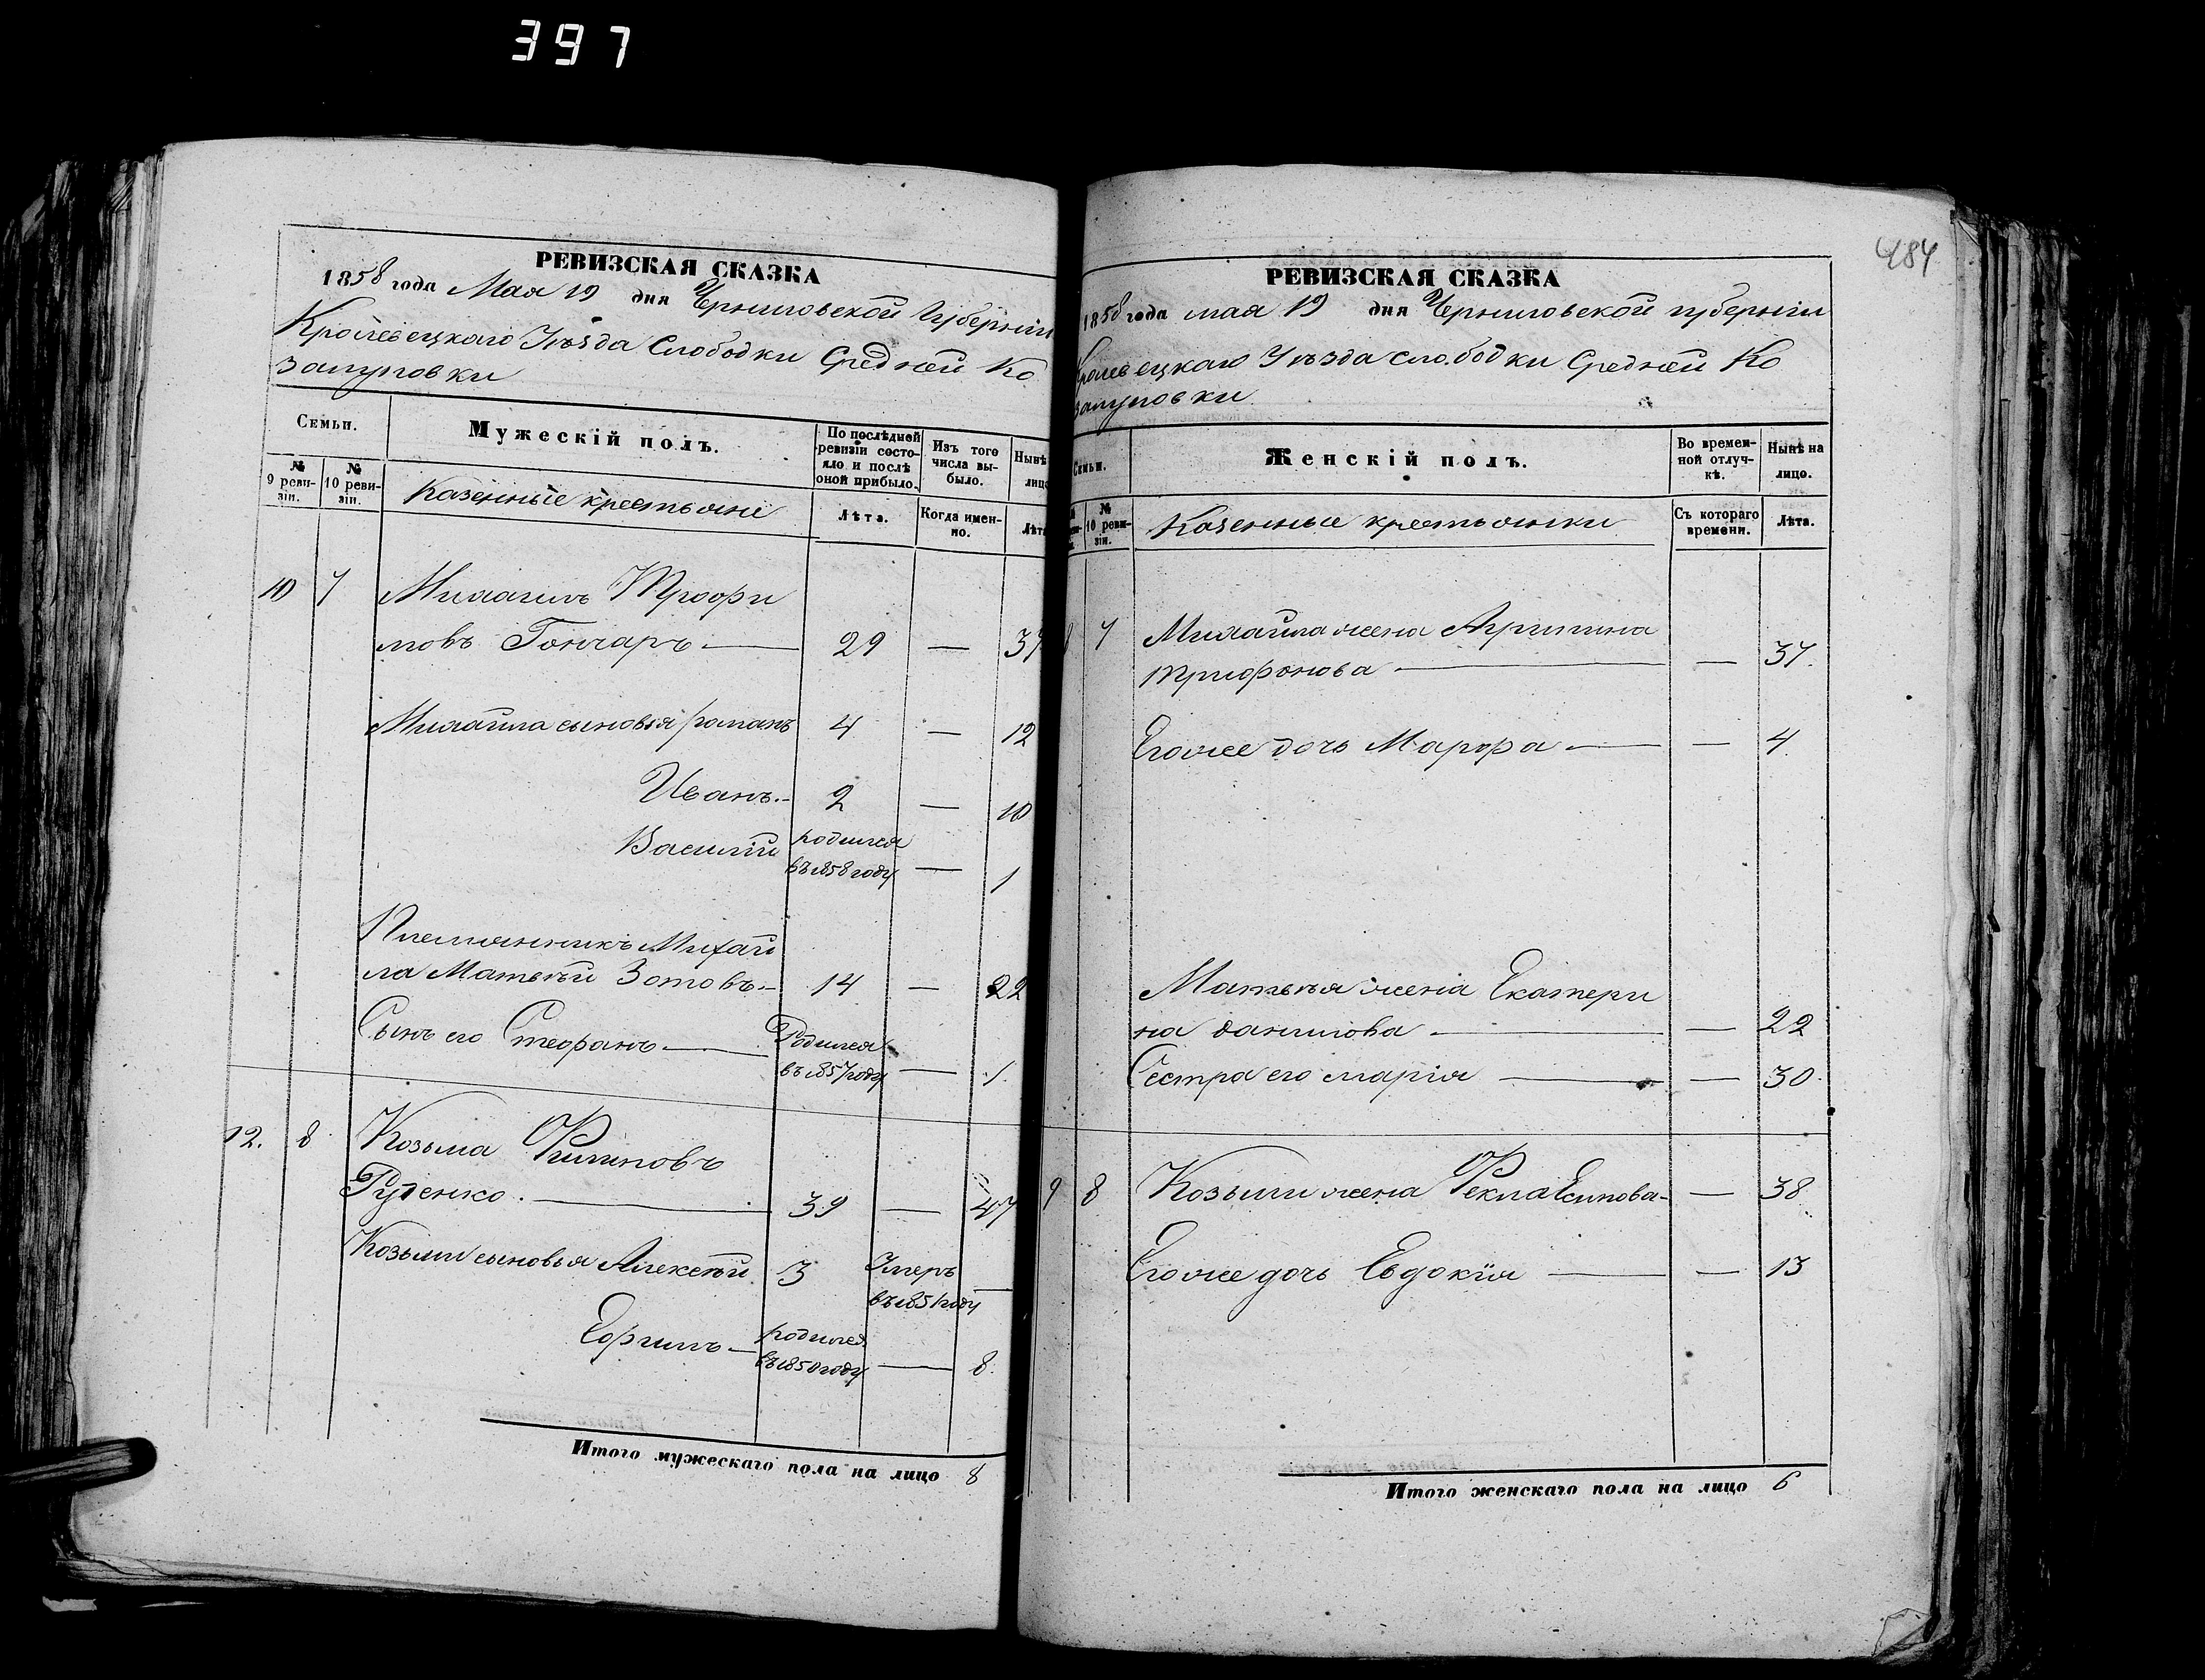 397
РЕВИЗСКАЯ СКАЗКА
1858 года Мая 19 дня Черниговской Губерніи
Кролевецкаго Уѣзда Слободки Средней Ко
Семьи.
Мужескій полъ.
По послѣдней ревизіи состояло и послѣ оной прибыло.
Изъ того числа выбыло.
Нынѣ
лицо
№ 9 ревизіи.
№ 10 ревизіи.
Казенные крестьяне
Лѣта.
Когда именно.
Лѣта
10 7 Михаилъ Трофи
мовъ Гончаръ — 29 — 37
Михайла сыновья Романъ 4 — 12
Иванъ.- 2 — 10
Василій родился
въ 1858 году — 1
Племянникъ Михай
ла Матвѣй Зотовъ.- 14 — 22
Сынъ его Стефанъ — Родился
въ 1857 году — 1.
12. 8 Козьма Филиповъ
39 — 47
Козьми сыновья Алексѣй 3 Умеръ
въ 1851 году —
Ефимъ — родился
въ 1850 году — 8.
Итого мужескаго пола на лицо 8
484
РЕВИЗСКАЯ СКАЗКА
1858 года мая 19 дня Черниговской губерніи
Кролевецкаго Уѣзда слободки Средней Ко
Семьи.
Женскій полъ.
Во временной отлучкѣ.
Нынѣ на лицо.
№ 10 ревизіи.
Казенные крестьянки
Съ котораго времени.
Лѣта.
7 Михайла жена Агрипина
Трифонова — — 37.
Егоже дочь Марфа — — 4.
Матвѣя жена Екатери
на Данилова — — 22
Сестра его Марія — — 30.
9 8 Козьми жена Фекла Есипова- — 38
Егоже дочь Евдокія — — 13
Итого женскаго пола на лицо 6